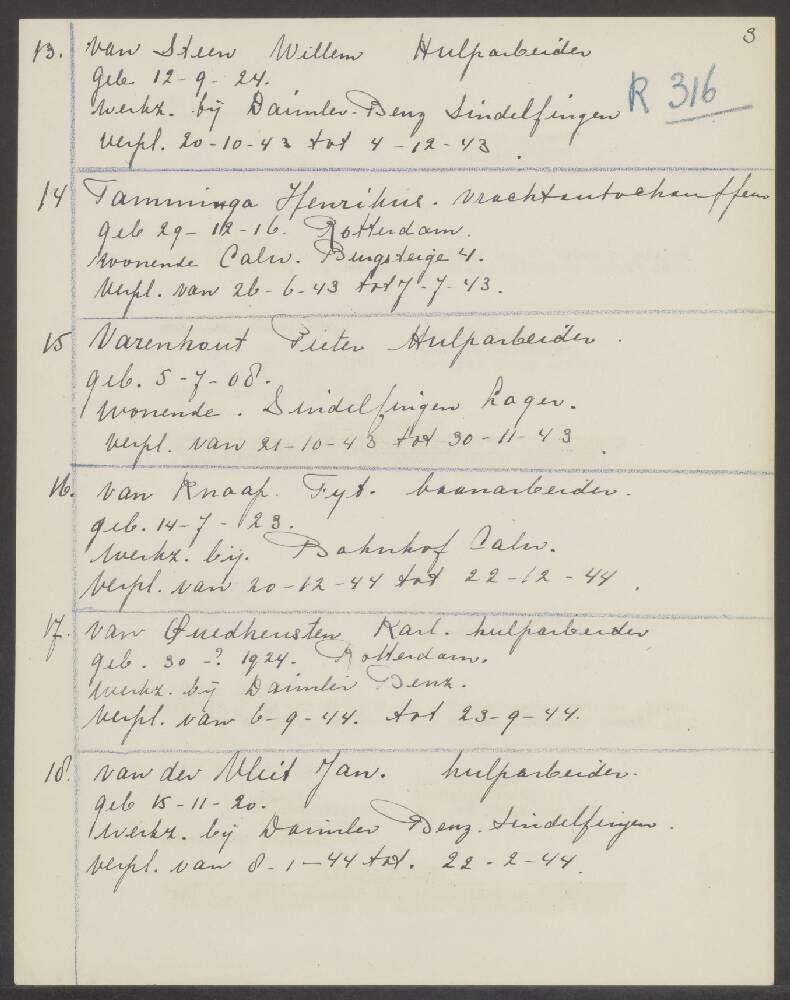 3
13. van Steen Willem Hulparbeider
geb 12-9-24.
werkz. bij Daimler-Benz Sindelfingen
R 316
verpl. 20-10-43 tot 4-12-43.
14 Tamminga Henrikus. vrachtautochauffeur
geb 29-12-16. Rotterdam.
wonende Calw. Bergsteige 4.
verpl. van 26-6-43 tot 7-7-43.
15 Varenhout Pieter Hulparbeider.
geb. 5-7-08.
wonende. Sindelfingen Lager.
verpl. van 21-10-43 tot 30-11-43.
16. van Knaap. Fyt. baanarbeider.
geb. 14-7-23.
werkz. bij. Bahnhof Calw.
verpl. van 20-12-44 tot 22-12-44.
17. van Quedheusten Karl. hulparbeider
geb. 30-? 1924. Rotterdam.
werkz. bij Daimler Benz.
verpl. van 6-9-44. tot 23-9-44.
18. van der Vliet Jan. hulparbeider.
geb 15-11-20.
werkz. bij Daimler Benz. Sindelfingen.
verpl. van 8-1-44 tot. 22-2-44.